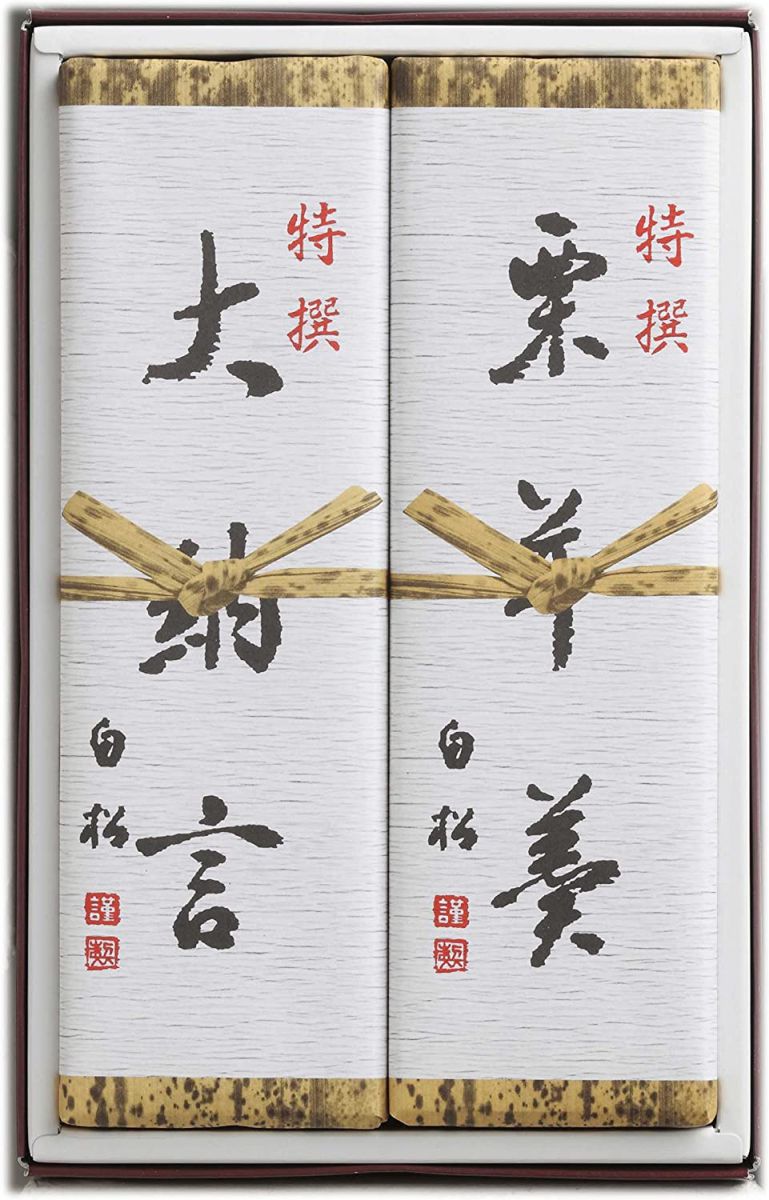 特撰
栗羊羹
白松
謹製
特撰
大納言
白松
謹製